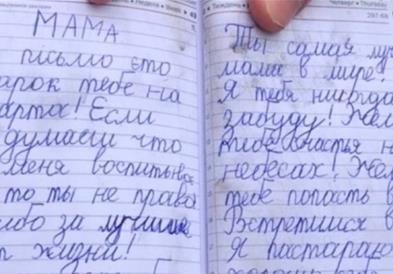 МАМА
письмо ето
арок тебе на
арта! Если
думаеш что
меня воспитывае
то ты не права
ибо за лучшие
жизни!
Четверг • Thursday
Ты самая лу
мама в мире!
Я тебя никогда
забуду! Жел
тебе счастья н
небесах! Жел
тебе попасть в
Встретимся в
Я постараю